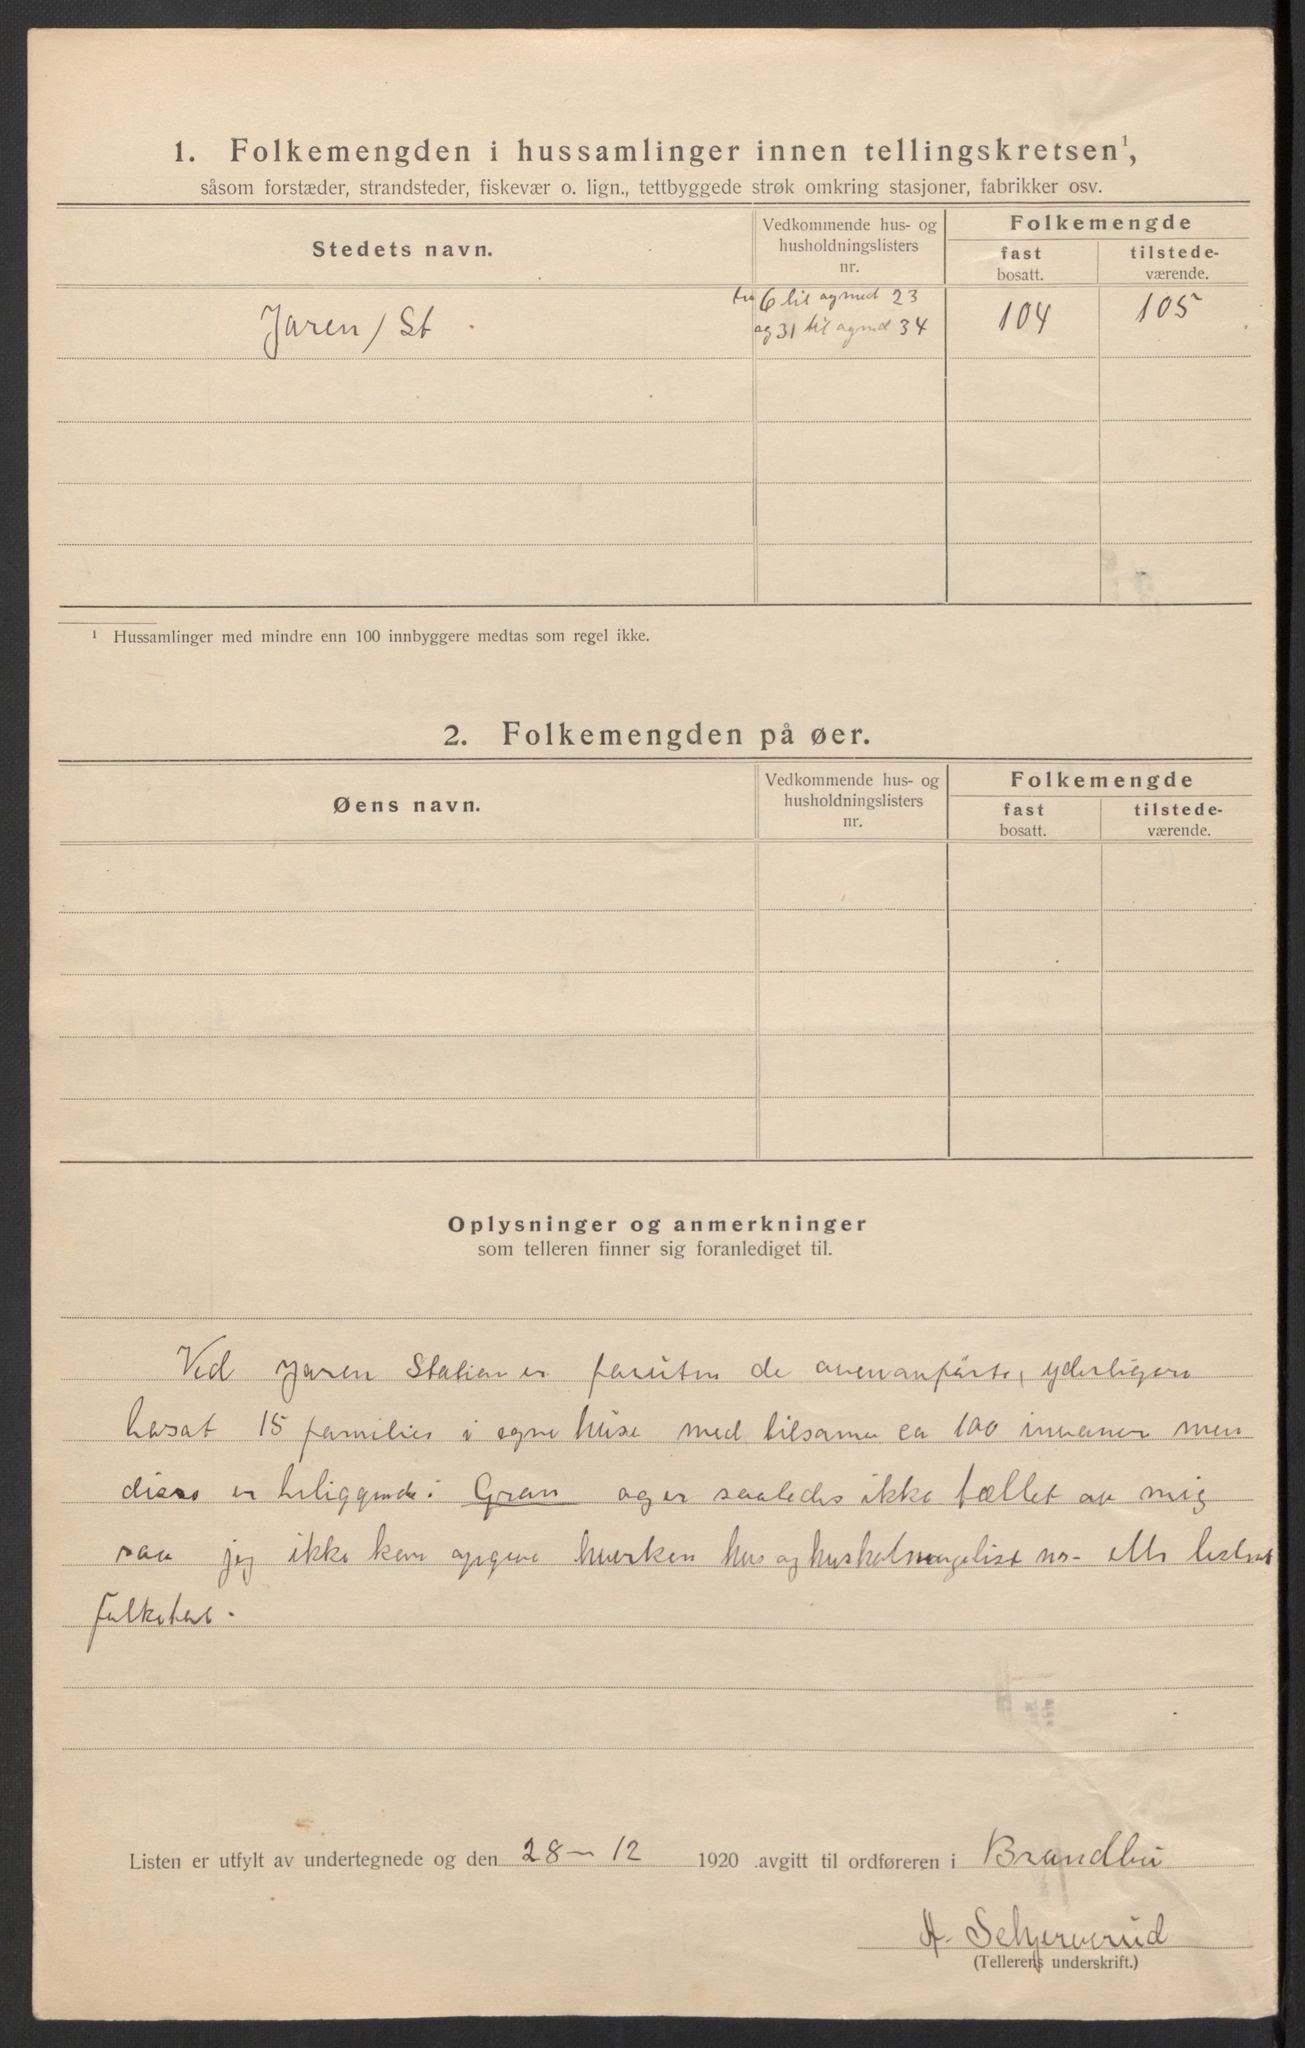 1. Folkemengden i hussamlinger innen tellingskretsen¹,
såsom forstæder, strandsteder, fiskevær o. lign., tettbyggede strøk omkring stasjoner, fabrikker osv.
Stedets navn.
Vedkommende hus- og
husholdningslisters
nr.
Folkemengde
fast
bosatt.
tilstede-
værende.
Jaren / St
fra 6 til og med 23
og 31 til og med 34
104
105
¹ Hussamlinger med mindre enn 100 innbyggere medtas som regel ikke.
2. Folkemengden på øer.
Øens navn.
Vedkommende hus- og
husholdningslisters
nr.
Folkemengde
fast
bosatt.
tilstede-
værende.
Oplysninger og anmerkninger
som telleren finner sig foranlediget til.
Ved Jaren Station er foruten de ovenanførte, yderligere
bosat 15 familier i egne huse med tilsamen ca 100 men
disse er beliggende i Gran og er saaledes ikke tællet av mig
saa jeg ikke kan opgive hverken hus og nr- eller
folketal.
Listen er utfylt av undertegnede og den 28-12 1920 avgitt til ordføreren i Brandbu
A. Schjerverud
(Tellerens underskrift.)